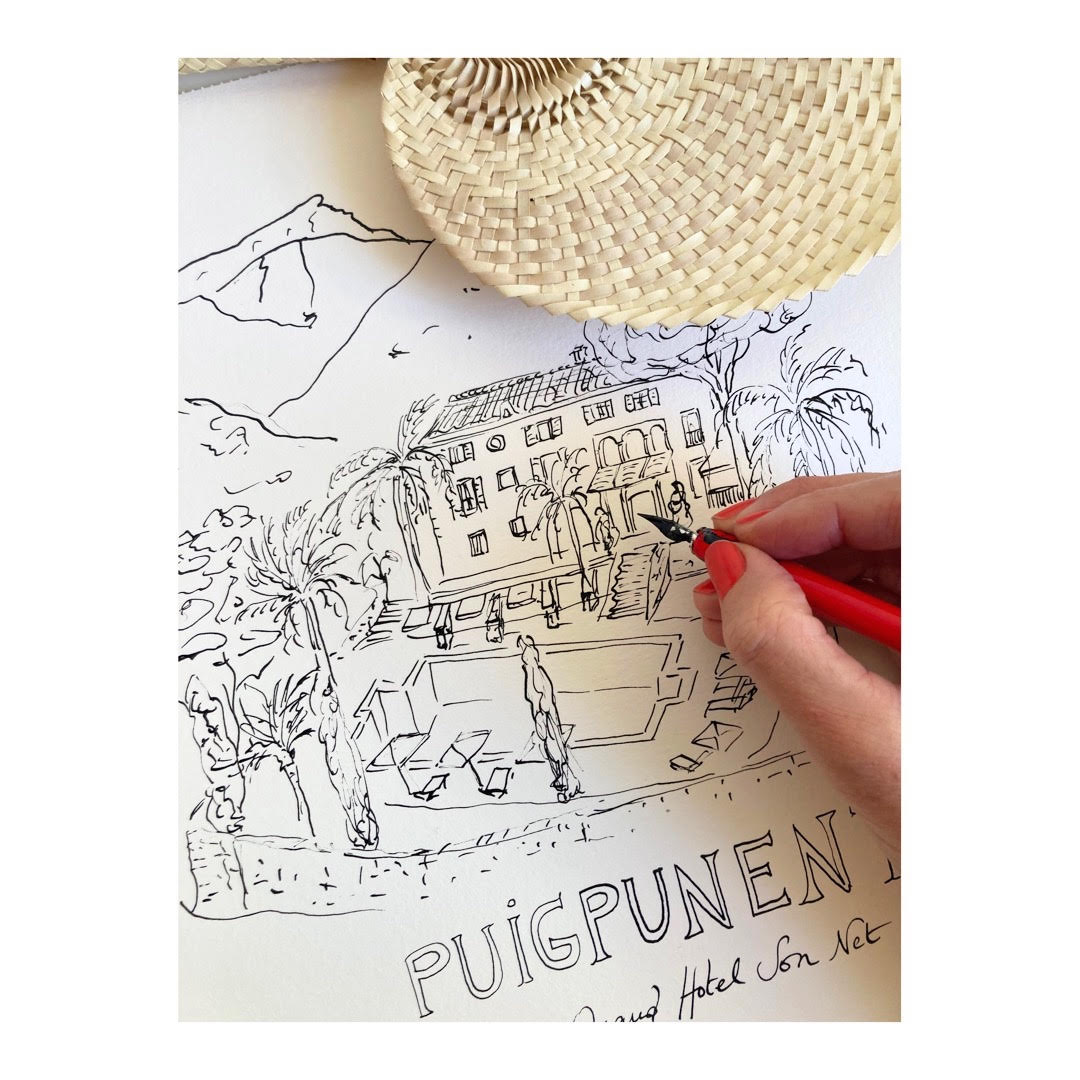 PUiGPUNENT
Grand Hotel Son Net